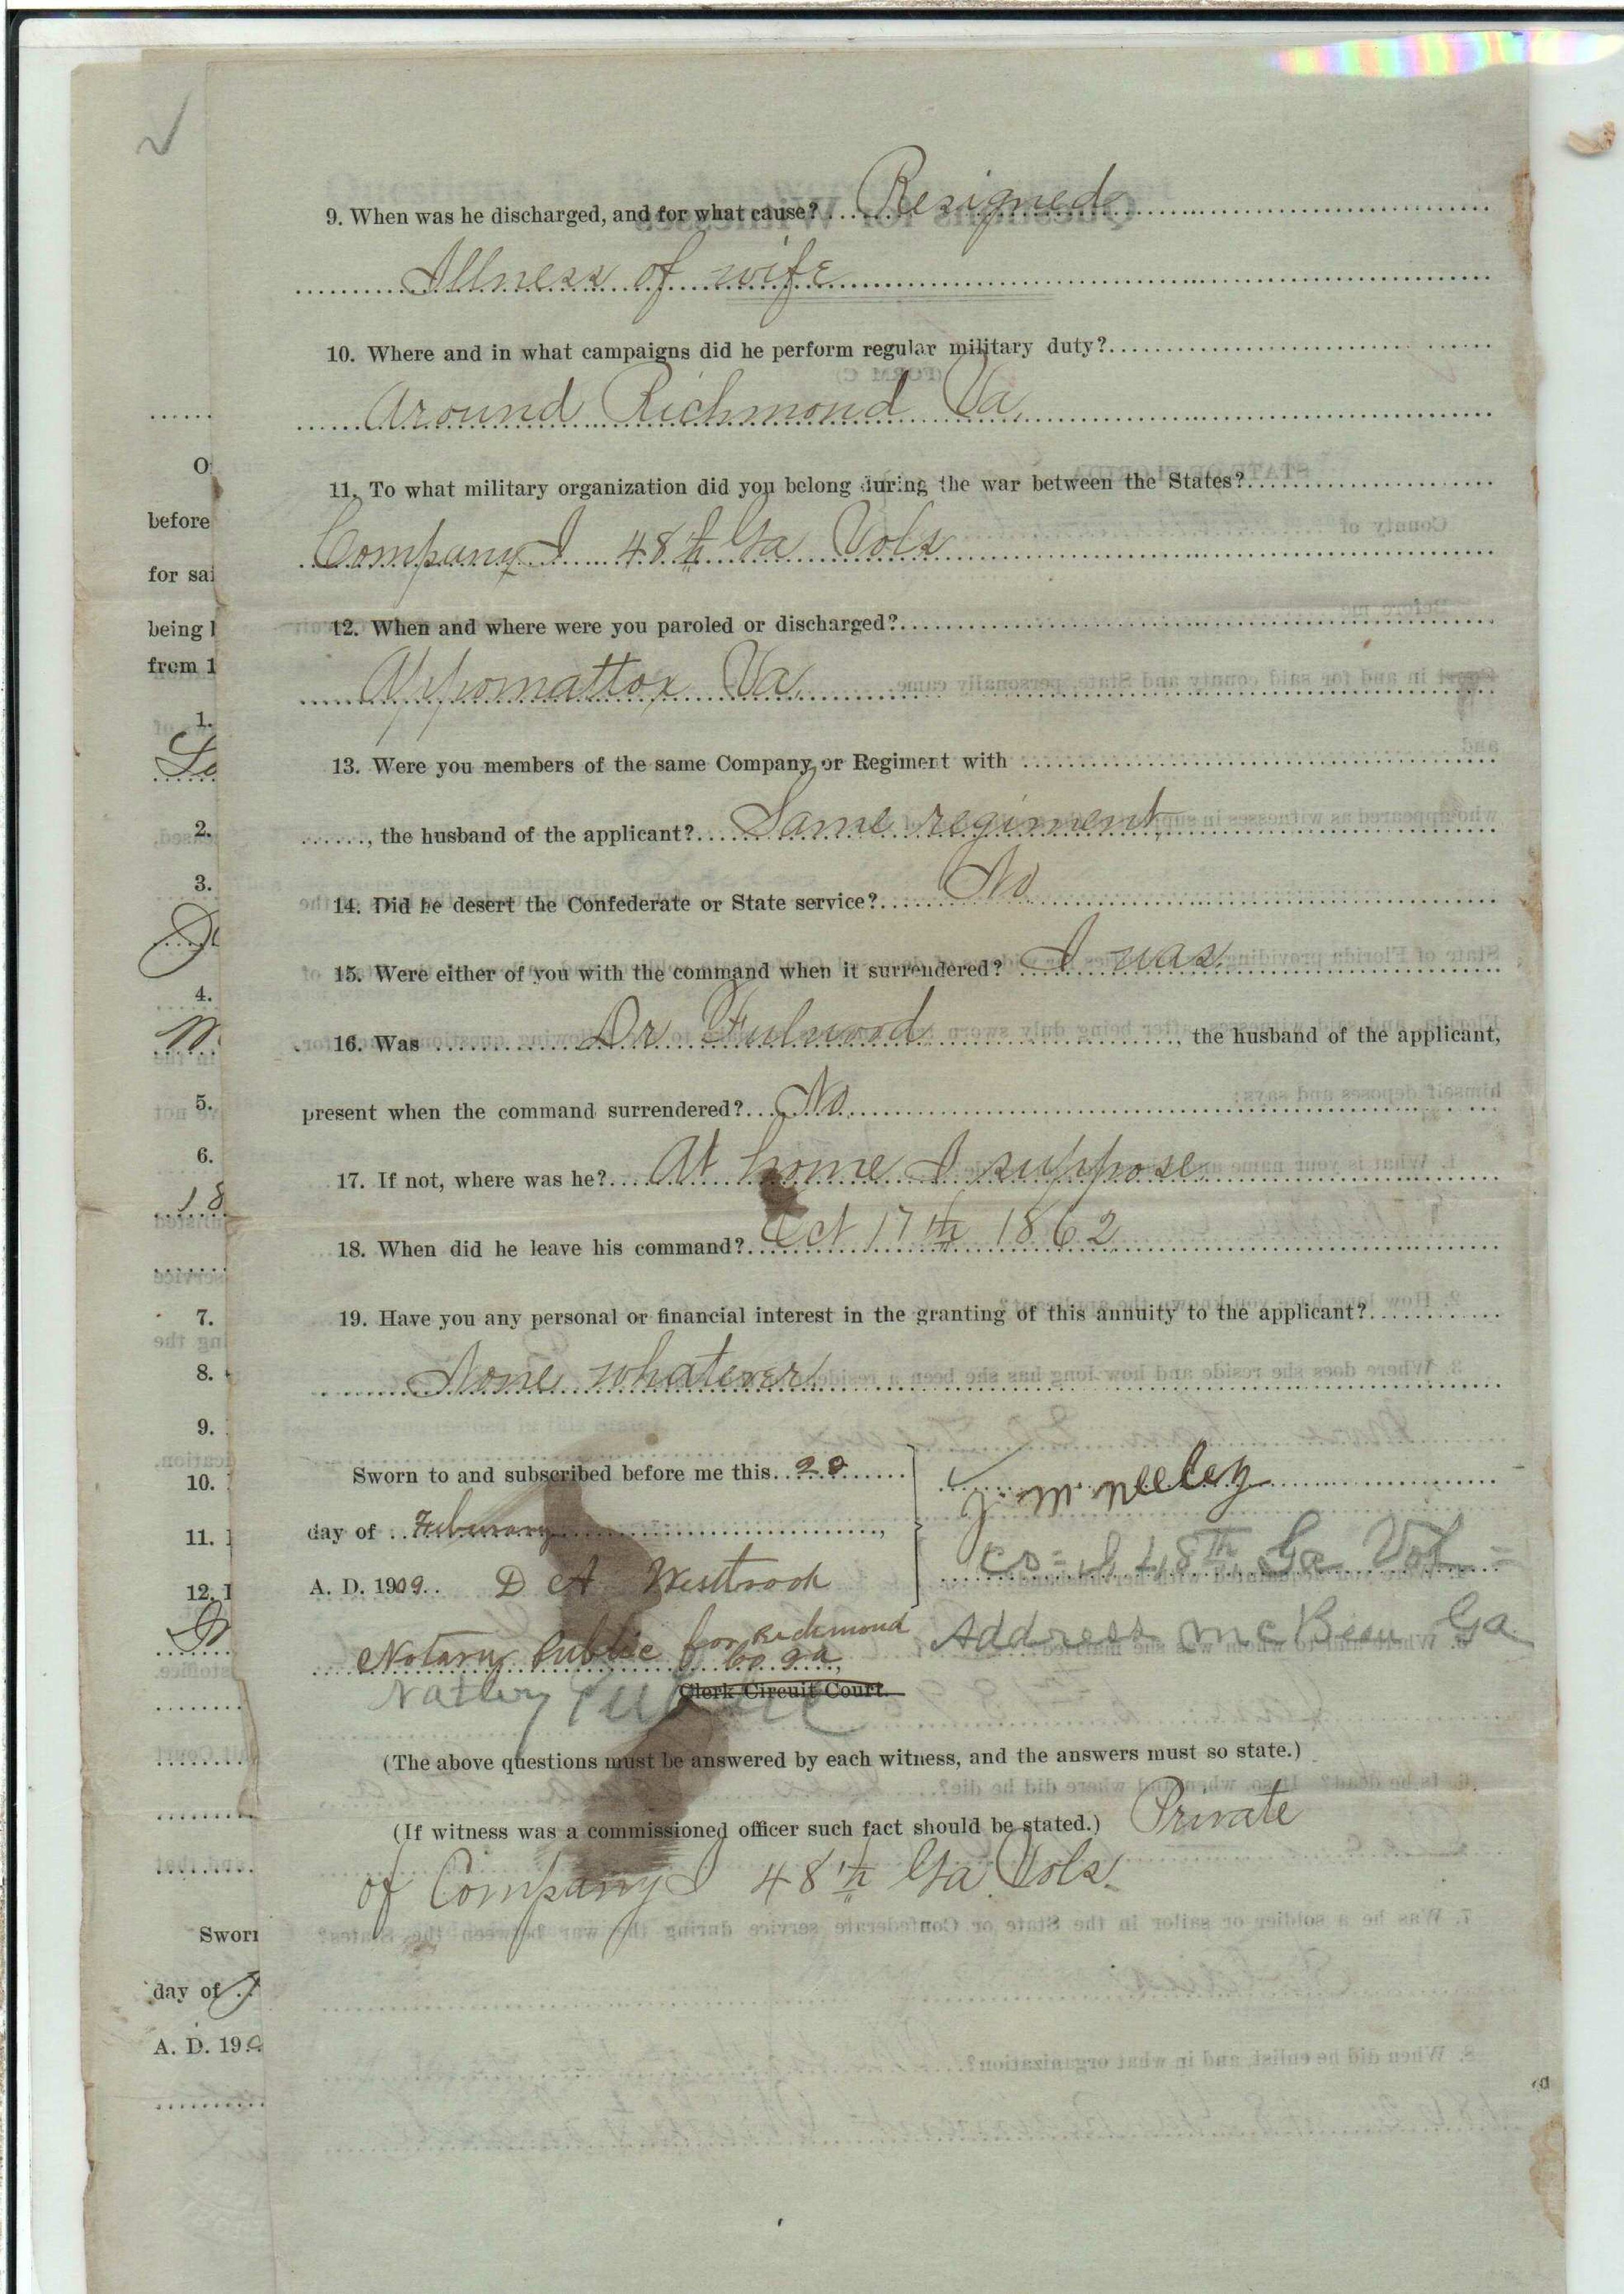 9. When was he discharged, and for what cause? Resigned
Illness of wife
10. Where and in what campaigns did he perform regular military duty?
Around Richmond Va.
11. To what military organization did you belong during the war between the States?
Company I 48th Ga Vols
12. When and where were you paroled or discharged?
Appomattox Va
13. Were you members of the same Company or Regiment with
, the husband of the applicant? Same regiment
14. Did he desert the Confederate or State service? No
15. Were either of you with the command when it surrendered? I was
16. Was Dr Fulwood, the husband of the applicant,
present when the command surrendered? No
17. If not, where was he? At home I suppose
18. When did he leave his command? Oct 17th 1862
19. Have you any personal or financial interest in the granting of this annuity to the applicant?
None whatever
Sworn to and subscribed before me this 20
J. M Neeley
day of February,
Co = I 48th Ga Vol =
A. D. 1909. D A Westbrook
Notary Public for Richmond
Co ga,
Address McBean Ga
Clerk Circuit Court.
Public
(The above questions must be answered by each witness, and the answers must so state.)
(If witness was a commissioned officer such fact should be stated.) Private
of Company I 48th Ga Vols.
before
for sai
being
from 1
1.
2.
3.
4.
5.
6.
18
7.
8.
9.
10.
11.
12.
Sworn
day of
A. D. 19